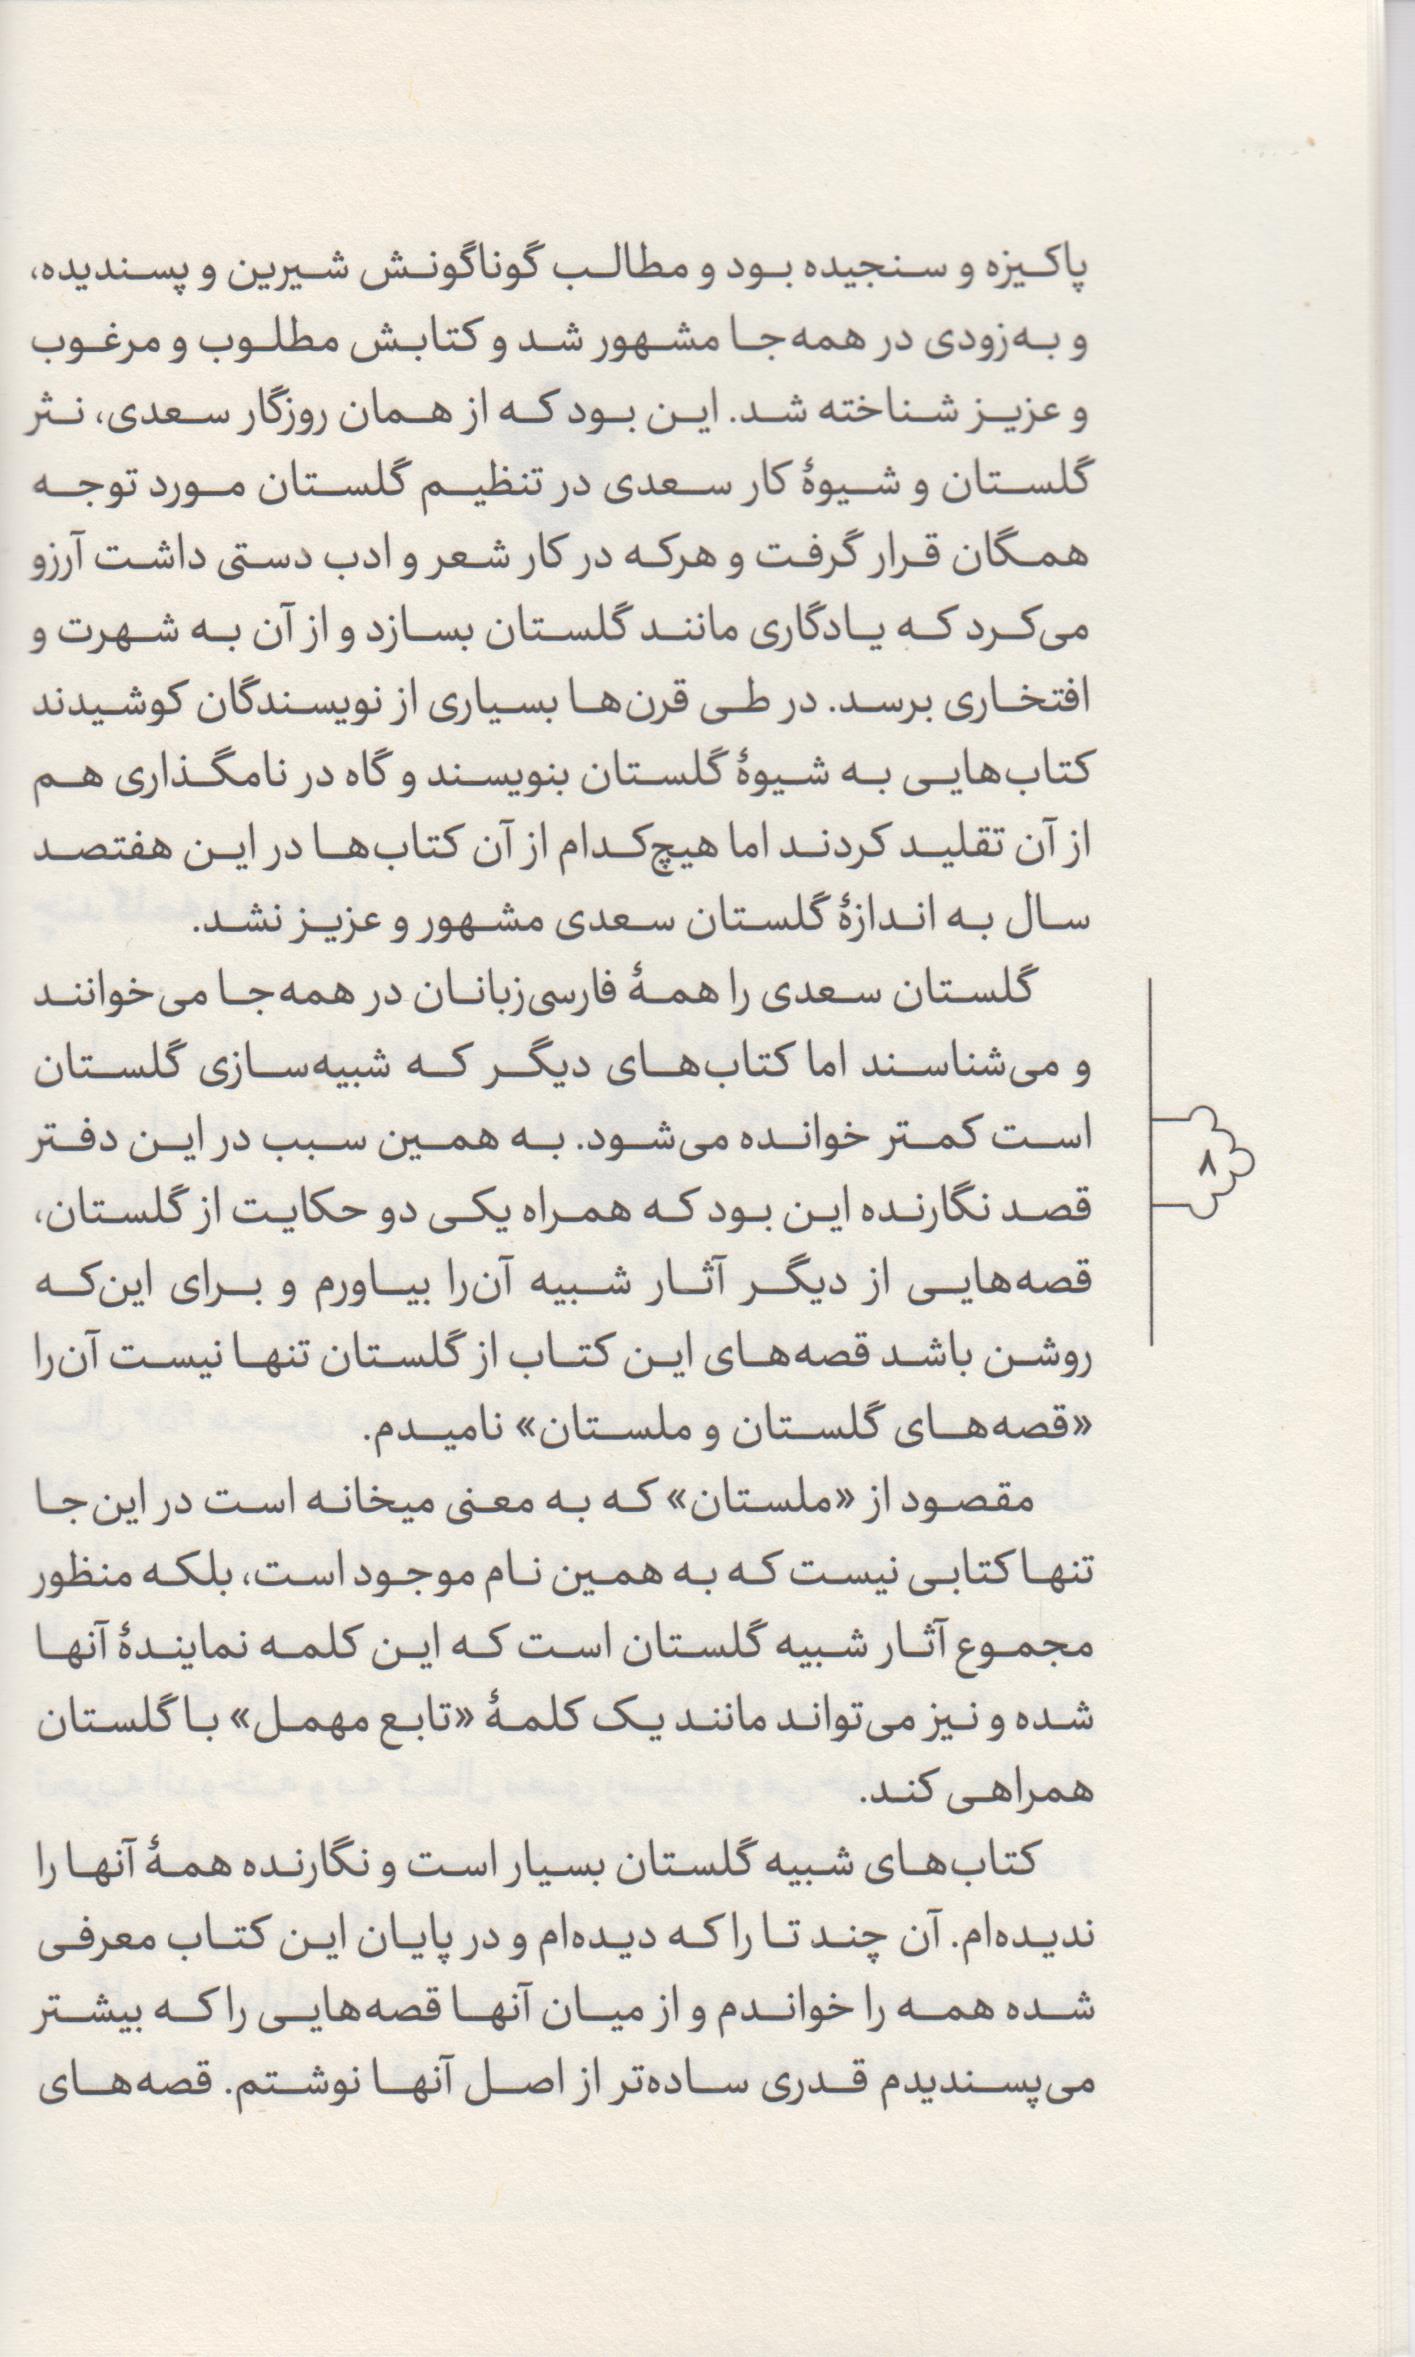 پاکیزه و سنجیده بود و مطالب گوناگونش شیرین و پسندیده،
و به‌زودی در همه‌جا مشهور شد و کتابش مطلوب و مرغوب
و عزیز شناخته شد. این بود که از همان روزگار سعدی، نثر
گلستان و شیوهٔ کار سعدی در تنظیم گلستان مورد توجه
همگان قرار گرفت و هرکه در کار شعر و ادب دستی داشت آرزو
می‌کرد که یادگاری مانند گلستان بسازد و از آن به شهرت و
افتخاری برسد. در طی قرن‌ها بسیاری از نویسندگان کوشیدند
کتاب‌هایی به شیوهٔ گلستان بنویسند و گاه در نامگذاری هم
از آن تقلید کردند اما هیچ‌کدام از آن کتاب‌ها در این هفتصد
سال به اندازهٔ گلستان سعدی مشهور و عزیز نشد.
گلستان سعدی را همهٔ فارسی‌زبانان در همه‌جا می‌خوانند
و می‌شناسند اما کتاب‌های دیگر که شبیه‌سازی گلستان
است کمتر خوانده می‌شود. به همین سبب در این دفتر
قصد نگارنده این بود که همراه یکی دو حکایت از گلستان،
قصه‌هایی از دیگر آثار شبیه آن‌را بیاورم و برای این‌که
روشن باشد قصه‌های این کتاب از گلستان تنها نیست آن‌را
«قصه‌های گلستان و ملستان» نامیدم.
مقصود از «ملستان» که به معنی میخانه است در این‌جا
تنها کتابی نیست که به همین نام موجود است، بلکه منظور
مجموع آثار شبیه گلستان است که این کلمه نمایندهٔ آنها
شده و نیز می‌تواند مانند یک کلمهٔ «تابع مهمل» با گلستان
همراهی کند.
کتاب‌های شبیه گلستان بسیار است و نگارنده همهٔ آنها را
ندیده‌ام. آن چند تا را که دیده‌ام و در پایان این کتاب معرفی
شده همه را خواندم و از میان آنها قصه‌هایی را که بیشتر
می‌پسندیدم قدری ساده‌تر از اصل آنها نوشتم. قصه‌های
۸